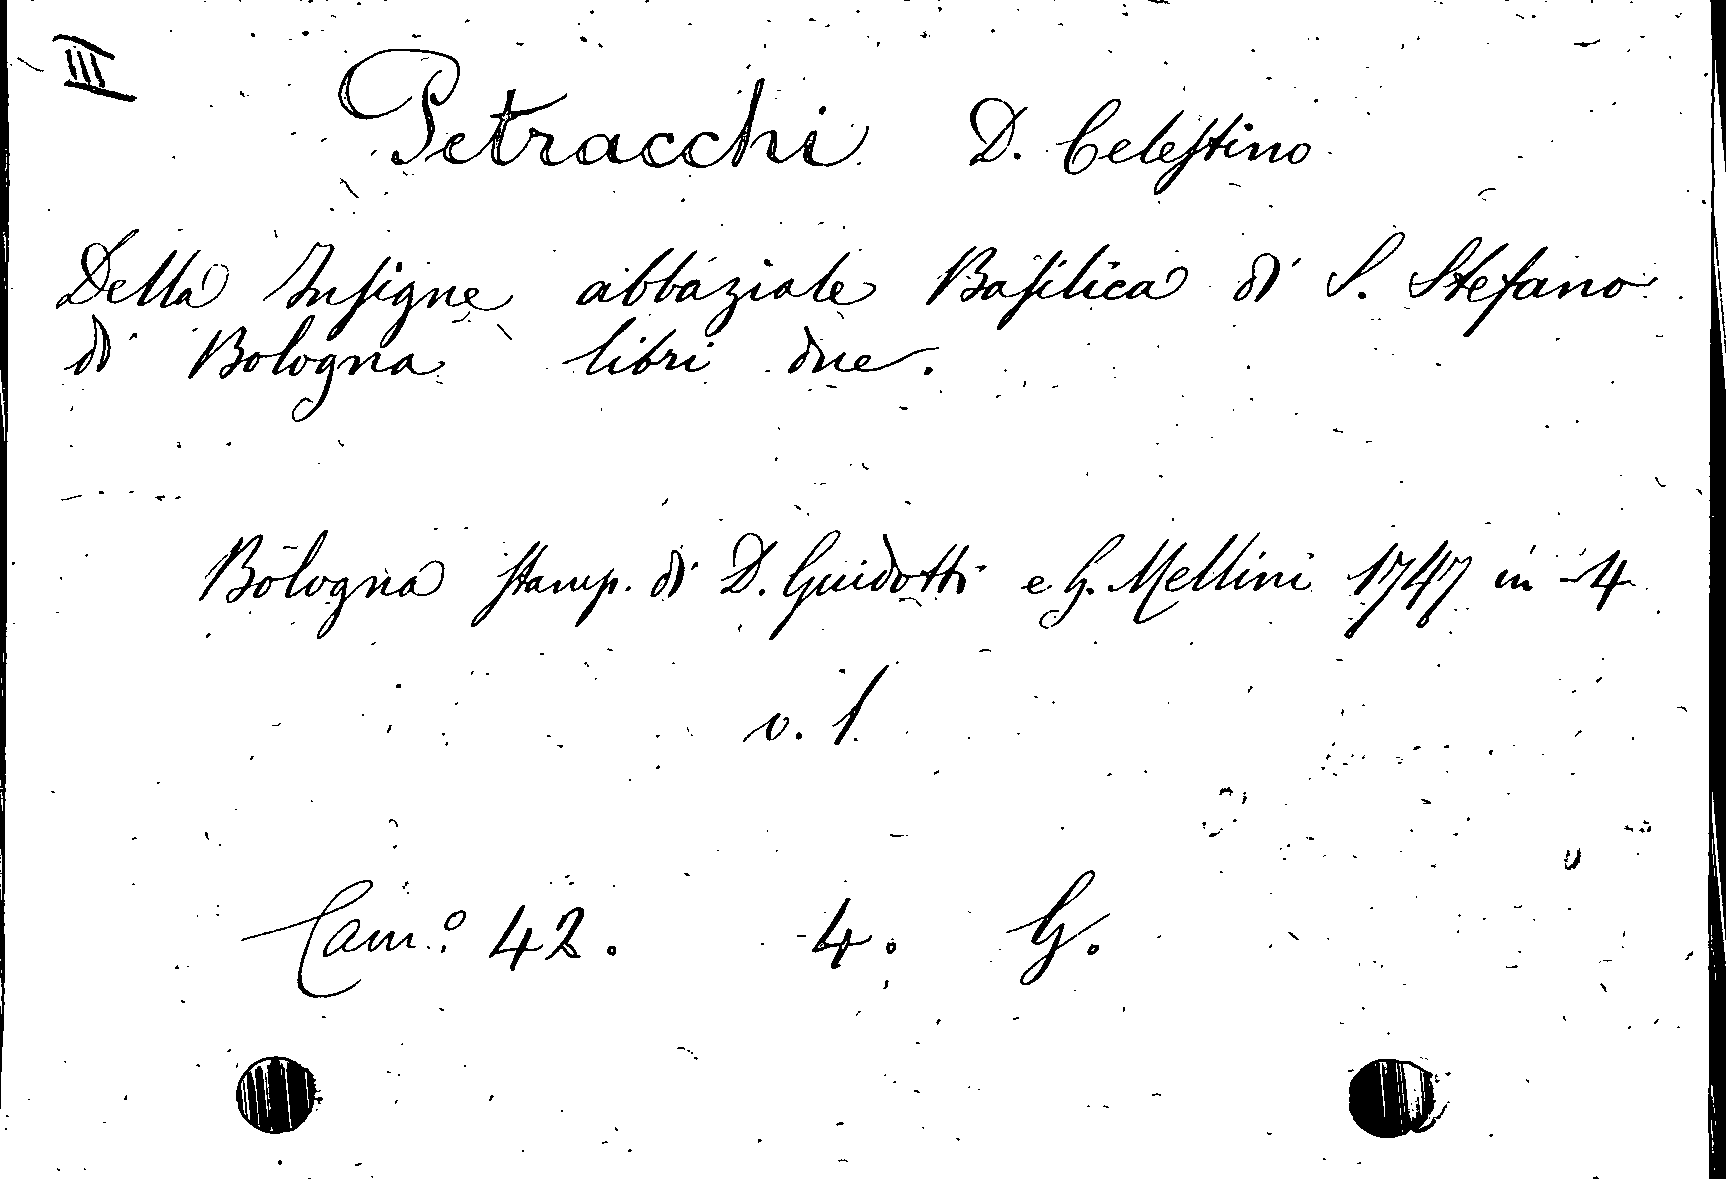 III
Petracchi D. Celestino
Della Insigne abbaziale Basilica di S. Stefano
di Bologna libri due.
Bologna stamp. di D. Guidotti e G. Mellini 1747 in 4
v. 1
Cam.º 42. 4. G.